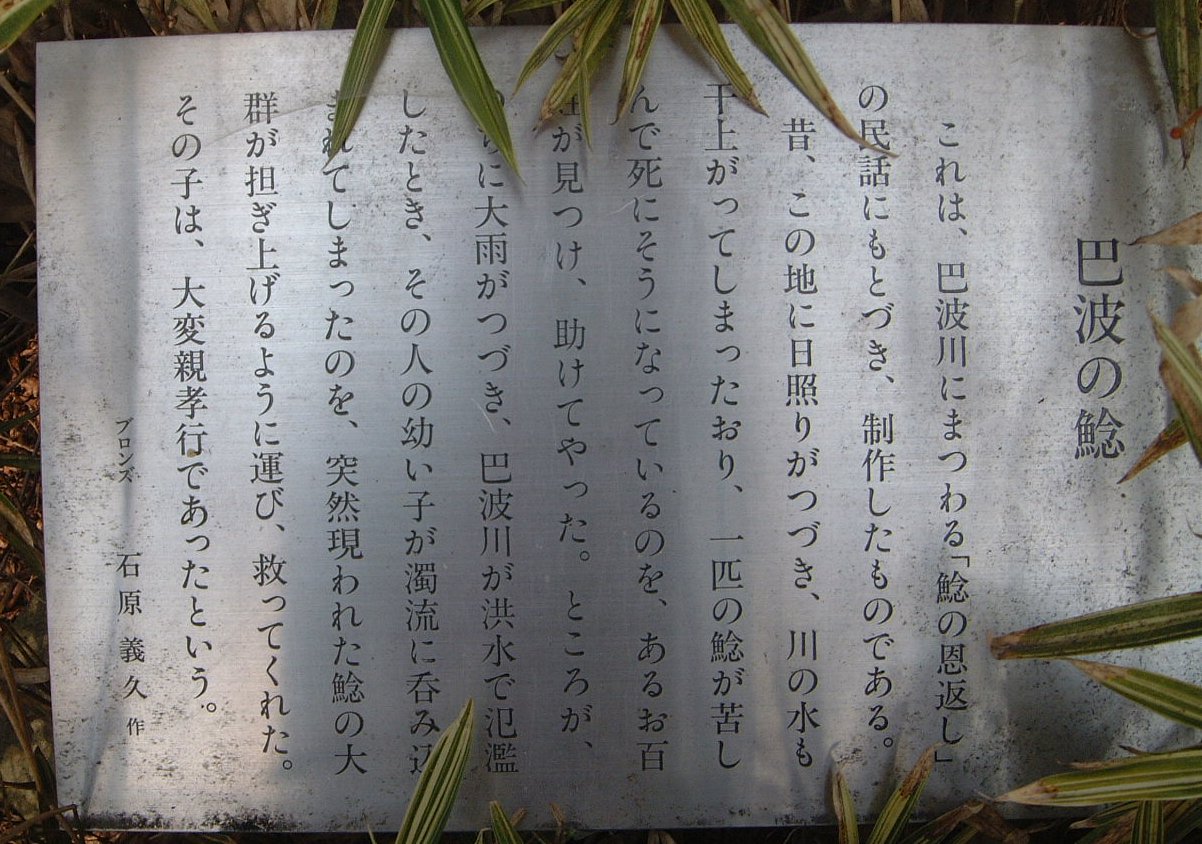 巴波の鯰
これは、巴波川にまつわる「鯰の恩返し」
の民話にもとづき、制作したものである。
昔、この地に日照りがつづき、川の水も
干上がってしまったおり、一匹の鯰が苦し
んで死にそうになっているのを、あるお百
が見つけ、助けてやった。ところが、
らに大雨がつづき、巴波川が洪水で氾濫
したとき、その人の幼い子が濁流に呑み込
まれてしまったのを、突然現われた鯰の大
群が担ぎ上げるように運び、救ってくれた。
その子は、大変親孝行であったという。
ブロンズ 石原義久 作